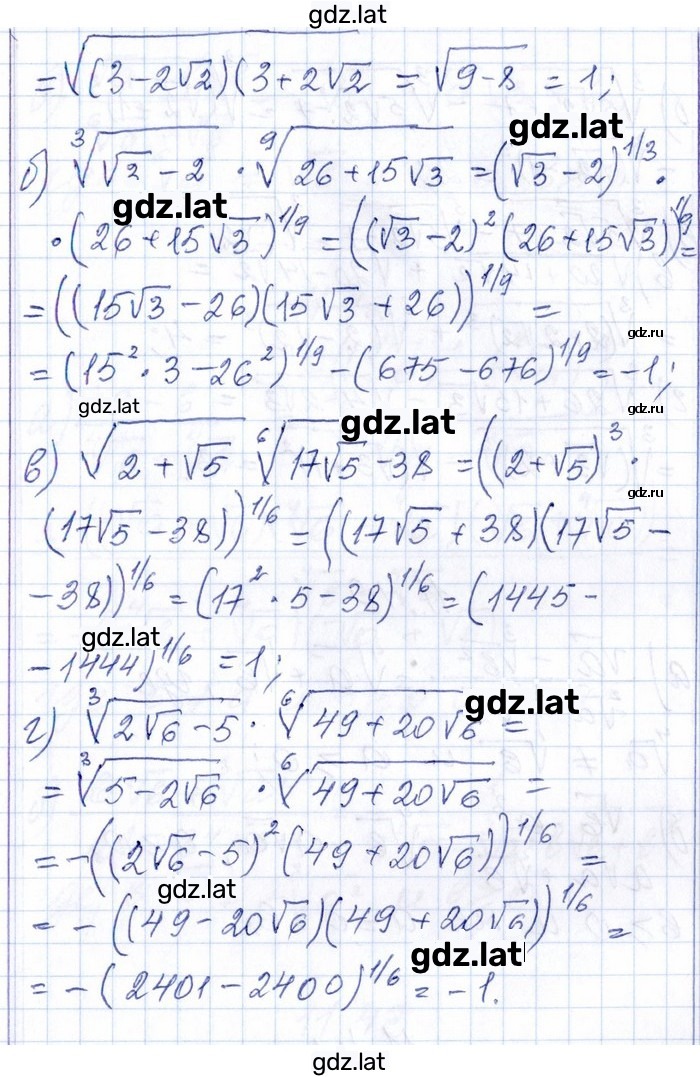 gdz.lat
= √((3 - 2√2)(3 + 2√2 = √(9 - 8) = 1;
gdz.lat
б) ∛(√3 - 2) · ⁹√(26 + 15√3) = (√3 - 2)^1/3 ·
gdz.lat
· (26 + 15√3)^1/9 = ((√3 - 2)²(26 + 15√3))^1/9 =
= ((15√3 - 26)(15√3 + 26))^1/9 =
gdz.ru
= (15² · 3 - 26²)^1/9 - (675 - 676)^1/9 = -1;
gdz.lat
gdz.ru
gdz.lat
в) √(2 + √5) ⁶√(17√5 - 38) = ((2 + √5)³ ·
gdz.ru
(17√5 - 38))^1/6 = ((17√5 + 38)(17√5 -
- 38))^1/6 = (17² · 5 - 38)^1/6 = (1445 -
gdz.lat
- 1444)^1/6 = 1;
gdz.lat
г) ∛(2√6 - 5) · ⁶√(49 + 20√6) =
= ∛(5 - 2√6) · ⁶√(49 + 20√6) =
= -((2√6 - 5)²(49 + 20√6))^1/6 =
gdz.lat
= - ((49 - 20√6)(49 + 20√6))^1/6 =
gdz.lat
= - (2401 - 2400)^1/6 = - 1.
gdz.lat